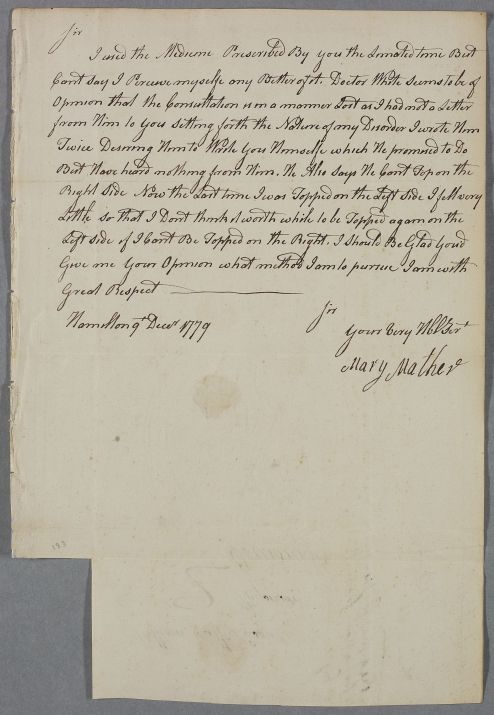 Sir
I used the Medicine Prescribed By you the Limated time But
Cant say I Perceive myselfe any Better of it. Doctor White seems to be of
Opinion that the Consultation is in a manner Lost as I had not a Letter
from Him to You sitting forth the Nature of my Disorder I wrote Him
Twice Desiring Him to Write You Himselfe which He promised to Do
But Have heard nothing from Him. He Also says He Cant Tap on the
Right Side Now the Last time I was Tapped on the Left side I fell very
Little so that I Dont think it worth while to be Tapped again on the
Left side if I Cant Be Tapped on the Right. I should Be Glad Youd
Give me Your Opinion what method I am to pursue I am with
Great Respect
Sir
Hamilton 9th Decr 1779
Your Very Hble Sert
Mary Mather
193